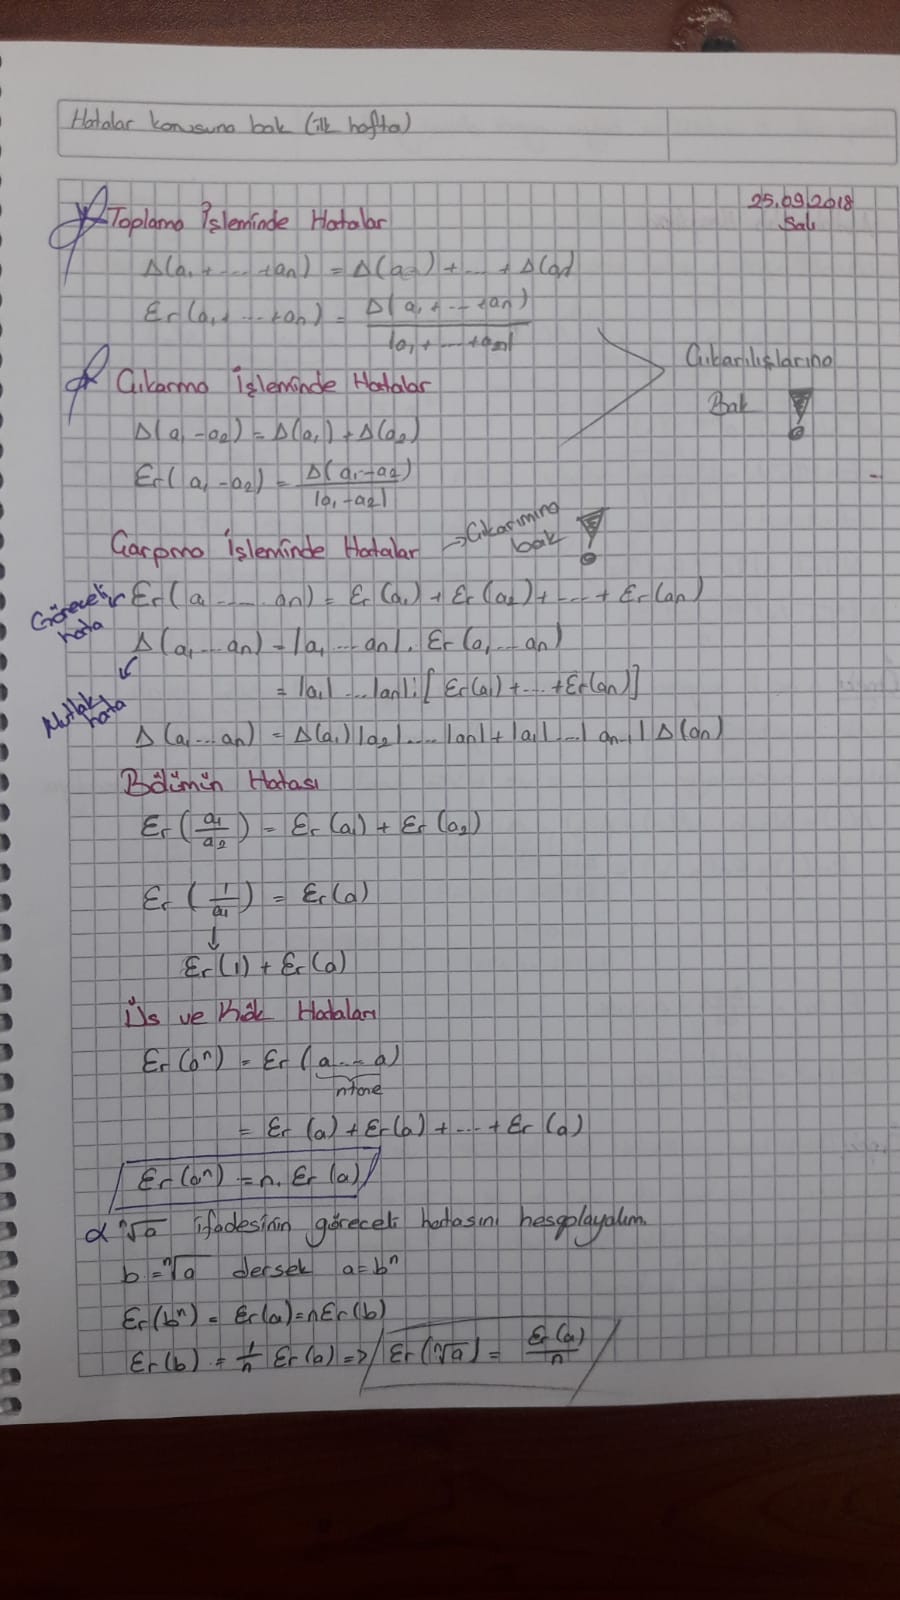 Hatalar konusuna bak (ilk hafta)
25.09.2018
Salı
Toplama İşleminde Hatalar
Δ(a₁ + ... + an) = Δ(a₁) + ... + Δ(an)
Er(a₁ + ... + an) = Δ(a₁ + ... + an) / |a₁ + ... + an|
Çıkarılışlarına
Bak !
Çıkarma İşleminde Hatalar
Δ(a₁ - a₂) = Δ(a₁) + Δ(a₂)
Er(a₁ - a₂) = Δ(a₁ - a₂) / |a₁ - a₂|
Çarpma İşleminde Hatalar → Çıkarımına bak !
Göreceli hata
Er(a₁ ..... an) = Er(a₁) + Er(a₂) + ... + Er(an)
Δ(a₁ ... an) = |a₁ ... an| . Er(a₁ ... an)
Mutlak hata
= |a₁| ... |an| . [Er(a₁) + ... + Er(an)]
Δ(a₁ ... an) = Δ(a₁) |a₂| ... |an| + |a₁| ... |an-1| Δ(an)
Bölümün Hatası
Er(a₁/a₂) = Er(a₁) + Er(a₂)
Er(1/a₁) = Er(a)
↓
Er(1) + Er(a)
Üs ve Kök Hataları
Er(aⁿ) = Er(a ... a)
n tane
= Er(a) + Er(a) + ... + Er(a)
Er(aⁿ) = n. Er(a)
α ⁿ√a ifadesinin göreceli hatasını hesaplayalım.
b = ⁿ√a dersek a = bⁿ
Er(bⁿ) = Er(a) = nEr(b)
Er(b) = 1/n Er(a) => Er(ⁿ√a) = Er(a)/n